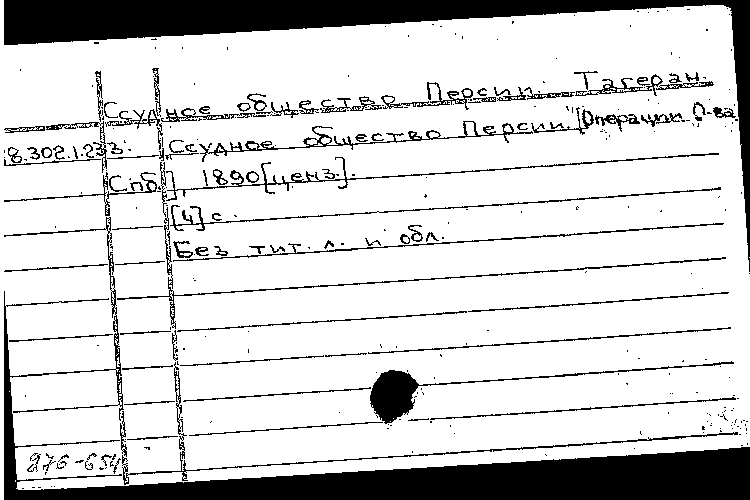 Ссудное общество Персии. Тагеран.
18.302.1.233. "Ссудное общество Персии". [Операции О-ва
Спб.], 1890 [ценз.].
[4] с.
Без тит. л. и обл.
276-654